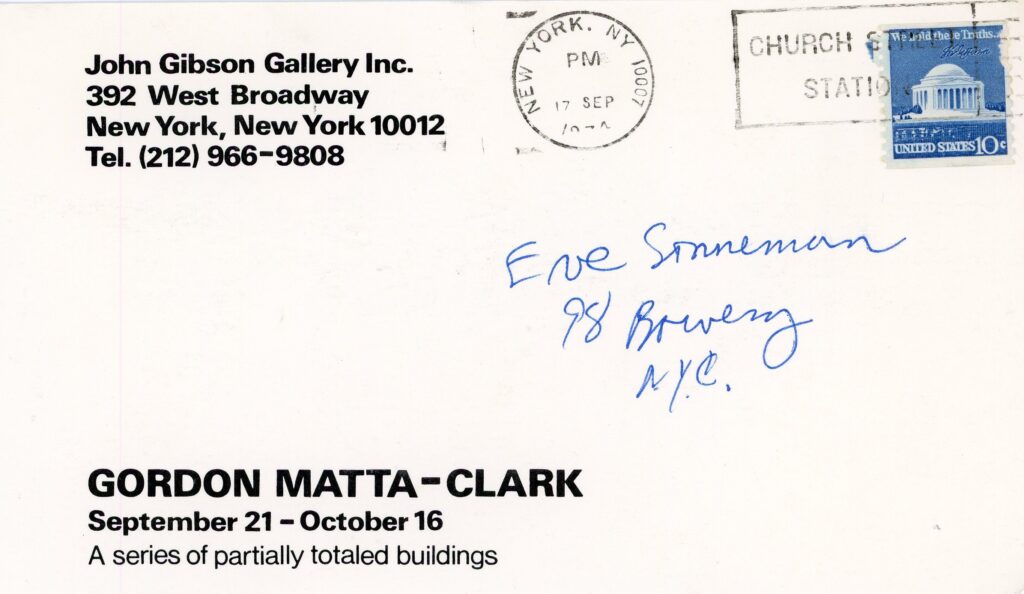 John Gibson Gallery Inc.
392 West Broadway
New York, New York 10012
Tel. (212) 966-9808
NEW YORK, NY 10007
PM
17 SEP
1974
CHURCH STREET
STATION
We hold these Truths...
UNITED STATES 10c
Eve Sonneman
98 Bowery
N.Y.C.
GORDON MATTA-CLARK
September 21 - October 16
A series of partially totaled buildings